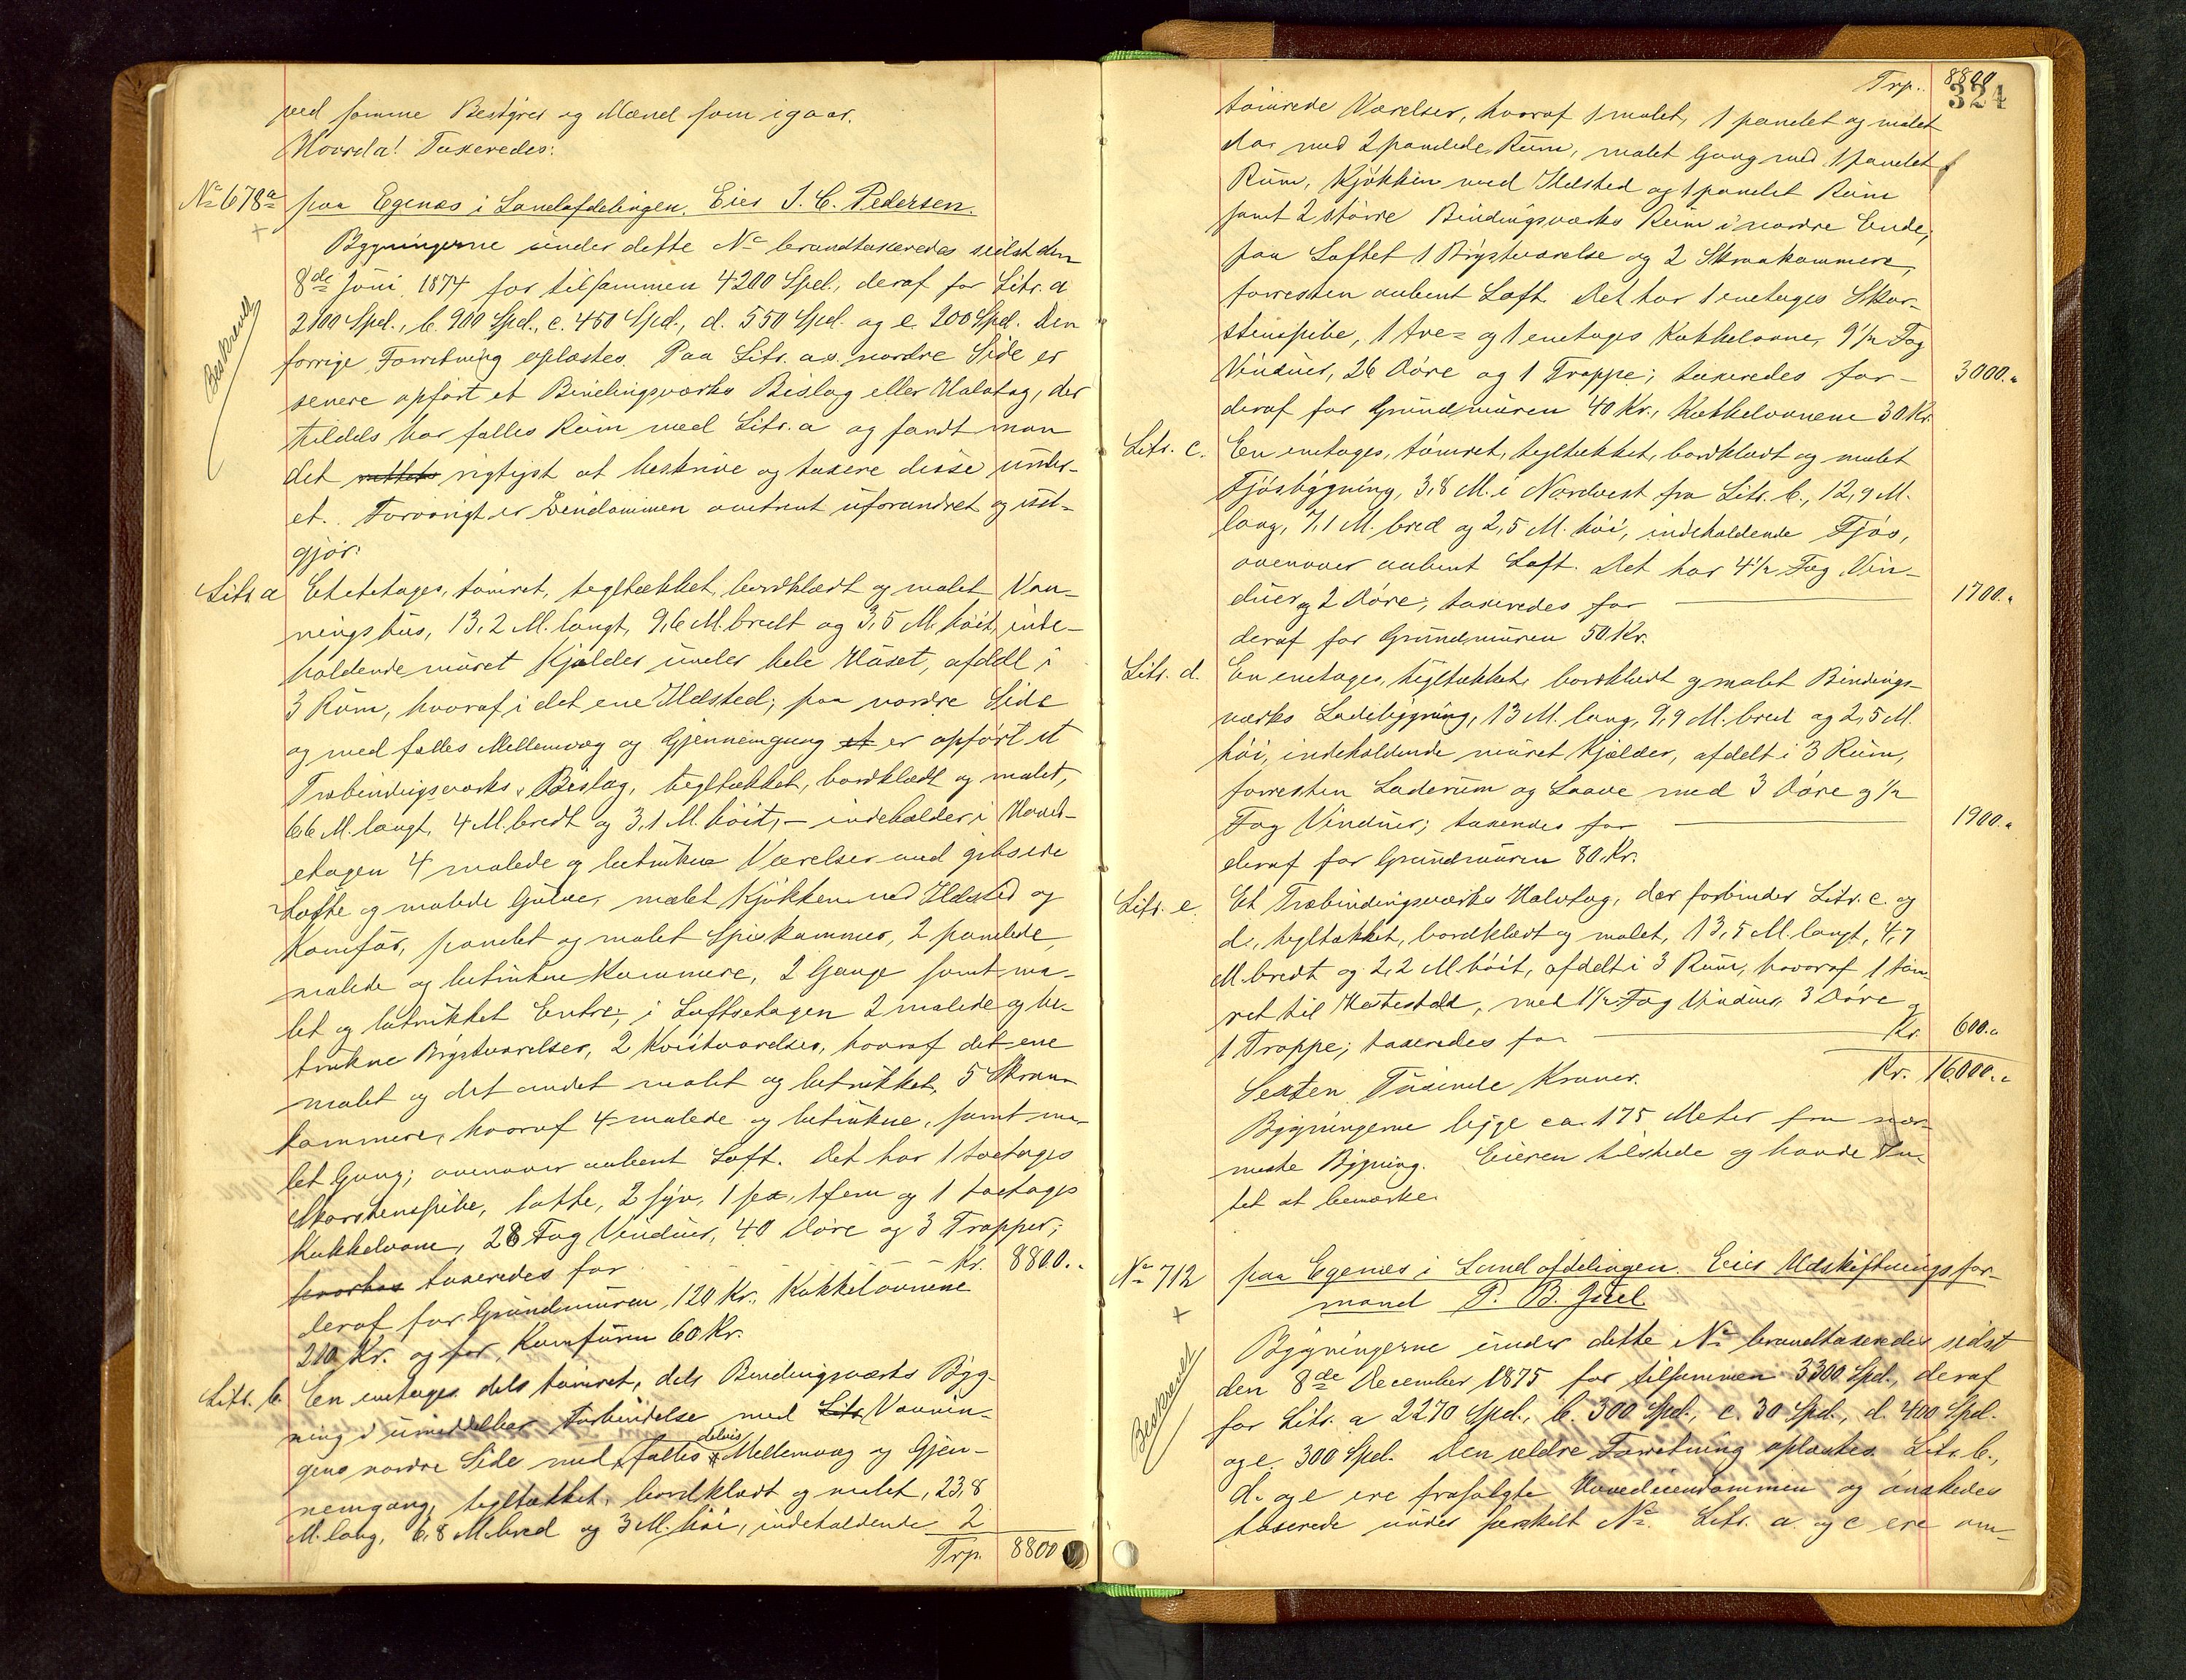 ved samme Bestyrer og Mænd som igaar.
Hvorda! Taxeredes:
No 678a paa Egenæs i Landafdelingen. Eier J. C. Pedersen.
Bygningerne under dette No brandtaxeredes sidst den
8de Juni 1874 for tilsammen 4200 Spd., deraf for Litr. a
2100 Spd., b. 900 Spd., c. 450 Spd., d. 550 Spd. og e. 200 Spd. Den
Beskrevet
forrige Forretning oplæstes. Paa Litr. a.s nordre Side er
senere opført et Bindingsværks Bislag eller Halvtag, der
tildels har fælles Rum med Litr. a og fandt man
det rigtigst at beskrive og taxere disse under-
et. Forøvrigt er Eiendommen omtrent uforandret og ud-
gjør:
Litr. a Et etetages, tømret, tegltækket, bordklædt og malet Vaa-
ningshus, 13,2 M. langt, 9,6 M. bredt og 3,5 M. høit, inde-
holdende muret Kjælder under hele Huset, afdelt i
3 Rum, hvoraf i det ene Ildsted; paa nordre Side
og med fælles Mellemvæg og Gjennemgang et er opført et
Træbindingsværks Bislag, tegltækket, bordklædt og malet,
6,6 M. langt, 4 M. bredt og 3,1 M. høit, - indeholder i Hoved-
etagen 4 malede og betrukne Værelser med gibsede
Lofte og malede Gulve, malet Kjøkken med Ildsted og
Komfur, panelet og malet Spiskammer, 2 panelede,
malede og betrukne Kammere, 2 Gange samt ma-
let og betrukket Entre; i Loftsetagen 2 malede og be-
trukne Brystværelser, 2 Kvistværelser, hvoraf det ene
malet og det andet malet og betrukket, 5 Skraa-
kammere, hvoraf 4 malede og betrukne, samt ma-
let Gang; ovenover aabent Loft. Det har 1 toetages
Skorstenspibe, 2 syv, 1 sex, 1 fem og 1 toetages
Kakkelovne, 28 Fag Vinduer, 40 Døre og 3 Trapper;
hvorhos taxeredes for - - - - Kr. 8800.„
deraf for Grundmuren 120 Kr., Kakkelovnene
210 Kr. og for Komfuren 60 Kr.
Litr. b. En enetages dels tømret, dels Bindingsværks Byg-
ning i umiddelbar Forbindelse med Litr. Vaanin-
gens nordre Side med delvis fælles Mellemvæg og Gjen-
nemgang, tegltækket, bordklædt og malet, 23,8
M. lang, 6,8 M. bred og 3 M. høi, indeholdende 2
Trp. 8800
Trp. 8800
324
tømrede Værelser, hvoraf 1 malet, 1 panelet og malet
do. med 2 panelede Rum, malet Gang med 1 panelet
Rum, Kjøkken med Ildsted og 1 panelet Rum
samt 2 større Bindingsværks Rum i nordre Ende;
paa Loftet 1 Brystværelse og 2 Skraakammere,
forresten aabent Loft. Det har 1 enetages Skor-
stenspibe, 1 tre- og 1 enetages Kakkelovne, 9 1/2 Fag
Vinduer, 26 Døre og 1 Trappe; taxeredes for - 3000.„
deraf for Grundmuren 40 Kr., Kakkelovnene 30 Kr.
Litr. c. En enetages, tømret, tegltækket, bordklædt og malet
Fjøsbygning, 3,8 M. i Nordvest fra Litr. b., 12,9 M.
lang, 7,1 M. bred og 2,5 M. høi, indeholdende Fjøs,
ovenover aabent Loft. Det har 4 1/2 Fag Vin-
duer og 2 Døre; taxeredes for 1700.„
deraf for Grundmuren 50 Kr.
Litr. d. En enetages, tegltækket, bordklædt og malet Bindings-
værks Ladebygning, 13 M. lang, 9,9 M. bred og 2,5 M.
høi, indeholdende muret Kjælder, afdelt i 3 Rum,
forresten Laderum og Laave med 3 Døre og 1/2
Fag Vinduer; taxeredes for 1900.„
deraf for Grundmuren 80 Kr.
Litr. e. Et Træbindingsværks Halvtag, der forbinder Litr. c. og
d., tegltækket, bordklædt og malet, 13,5 M. langt, 4,7
M. bredt og 2,2 M. høit, afdelt i 3 Rum, hvoraf 1 tøm-
ret til Hestestald, med 1 1/2 Fag Vinduer, 3 Døre og
1 Trappe; taxeredes for Kr. 600.„
Sexten Tusinde Kroner. Kr. 16,000.„
Bygningerne ligge ca. 175 Meter fra nær-
meste Bygning. Eieren tilstede og havde In-
tet at bemærke.
No 712 paa Egenæs i Landafdelingen. Eier Udskiftningsfor-
mand P. B. Juel.
Bygningerne under dette No brandtaxeredes sidst
Beskrevet
den 8de December 1875 for tilsammen 3300 Spd., deraf
for Litr. a 2270 Spd., b. 300 Spd., c. 30 Spd., d. 400 Spd.
og e. 300 Spd. Den ældre Forretning oplæstes. Litr. b.,
d. og e ere frasolgte Hovedeiendommen og ønskedes
taxerede under særskilt No. Litr. a. og c ere om-